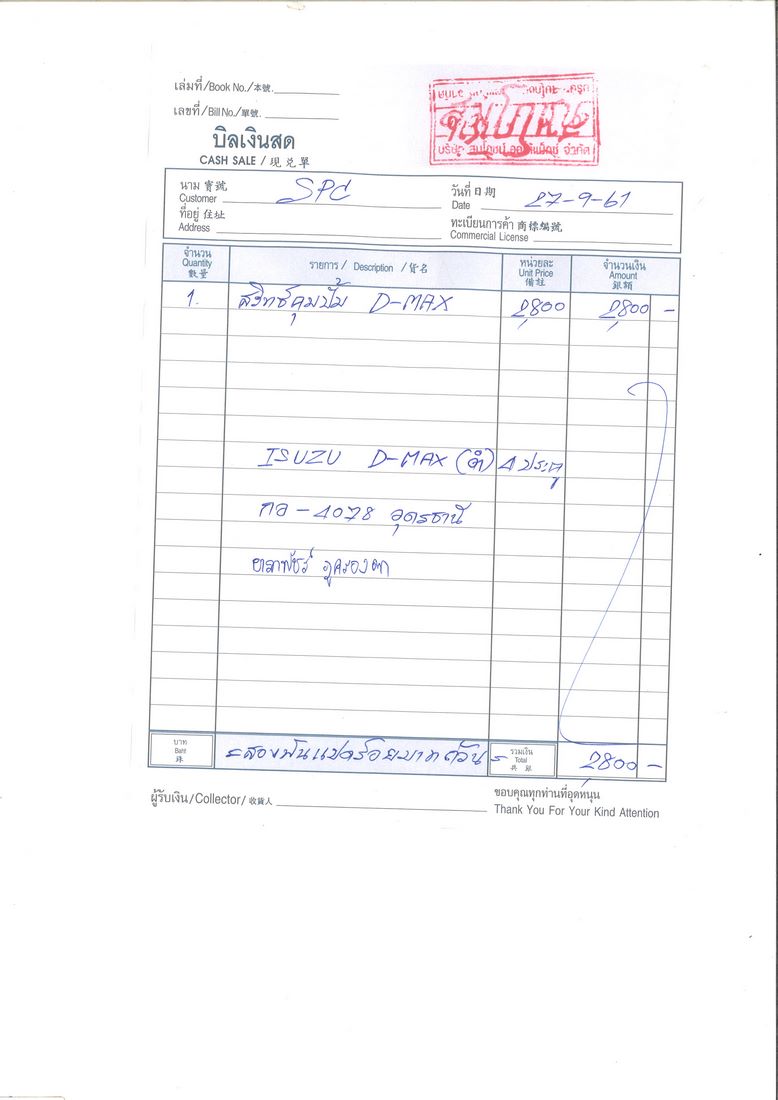 เล่มที่/Book No./本號.
เลขที่/Bill No./單號.
บิลเงินสด
CASH SALE / 現兑單
สมโภชน์
บริษัท สมโภชน์ จำกัด
นาม 寶號
Customer SPC
วันที่ 日期
Date 27-9-61
ที่อยู่ 住址
Address
ทะเบียนการค้า 商標編號
Commercial License
จำนวน รายการ / Description / 貨名 หน่วยละ จำนวนเงิน
Quantity Unit Price Amount
數量 備註 銀額
1. สวิทซ์คุมปั้ม D-MAX 2,800 2,800 -
ISUZU D-MAX (ดำ) 4 ประตู
กอ - 4078 อุดรธานี
บาท
Baht
銖
= สองพันแปดร้อยบาทถ้วน =
รวมเงิน
Total
共銀
2,800 -
ผู้รับเงิน/Collector/ 收貨人
ขอบคุณทุกท่านที่อุดหนุน
Thank You For Your Kind Attention